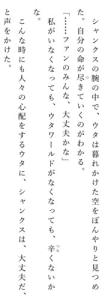 シャンクスの腕の中で、ウタは暮れかけた空をぼんやりと見つめ
た。自分の命が尽きていくのがわかる。
「……ファンのみんな、大丈夫かな」
私がいなくなっても、ウタワールドがなくなっても、辛くないか
な。
こんな時にも人々の心配をするウタに、シャンクスは、大丈夫だ、
と声をかけた。